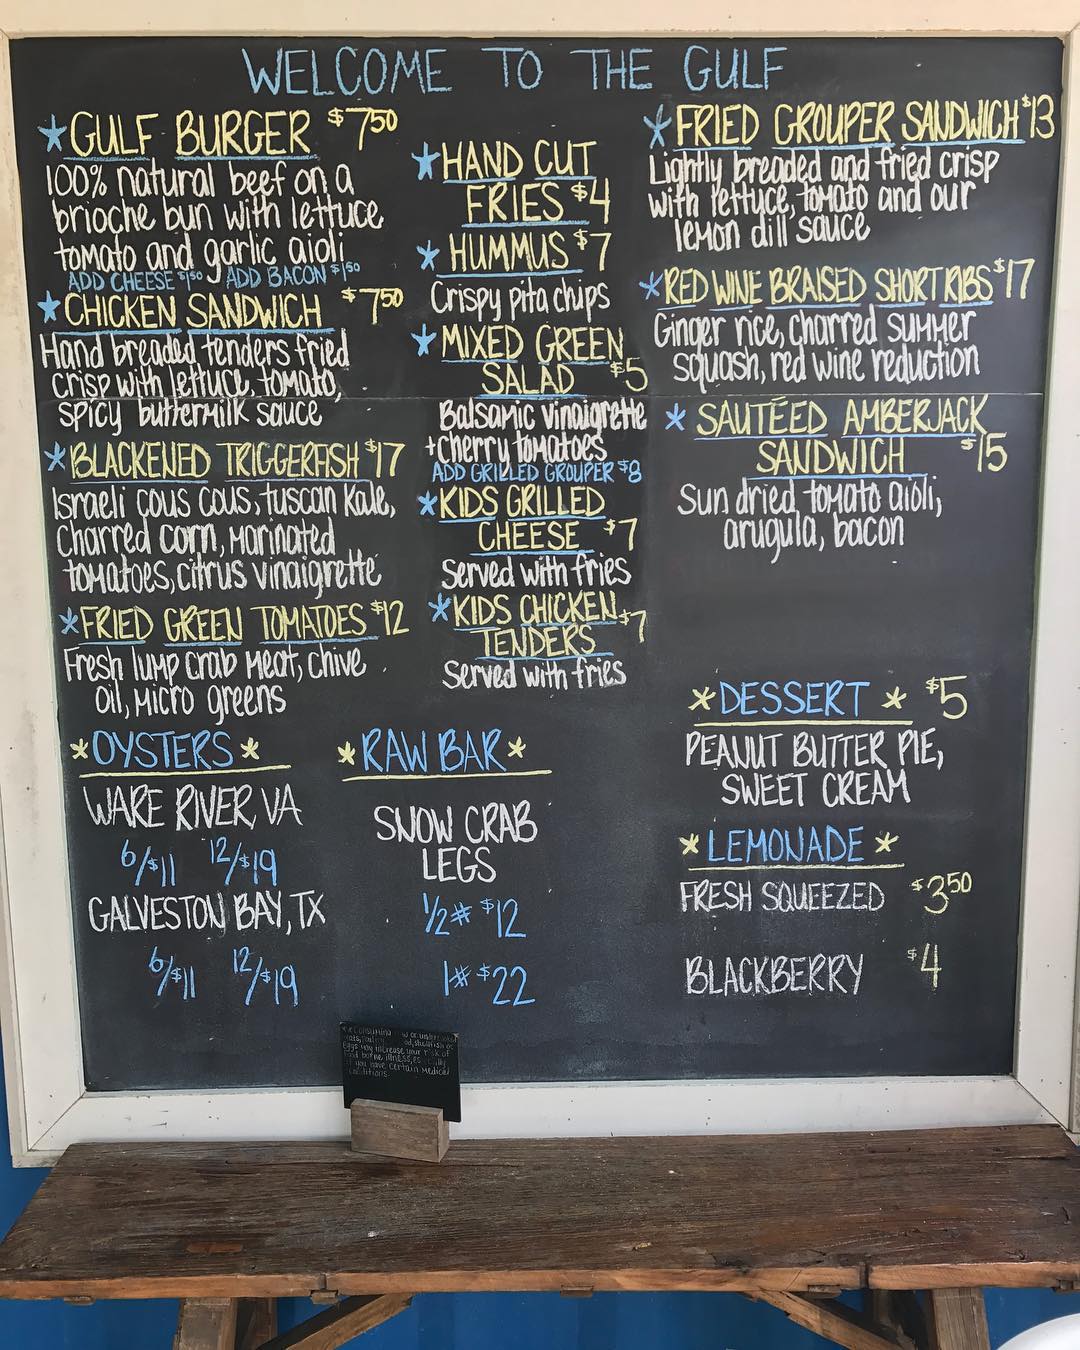 WELCOME TO THE GULF
*GULF BURGER $7 50
100% natural beef on a
brioche bun with lettuce,
tomato and garlic aioli
ADD CHEESE $1 50 ADD BACON $1 50
*CHICKEN SANDWICH $7 50
Hand breaded tenders fried
crisp with lettuce, tomato,
spicy buttermilk sauce
*BLACKENED TRIGGERFISH $17
Israeli cous cous, tuscan kale,
charred corn, marinated
tomatoes, citrus vinaigrette
*FRIED GREEN TOMATOES $12
Fresh lump crab meat, chive
oil, micro greens
*HAND CUT
FRIES $4
*HUMMUS $7
Crispy pita chips
*MIXED GREEN
SALAD $5
Balsamic vinaigrette
+cherry tomatoes
ADD GRILLED GROUPER $8
*KIDS GRILLED
CHEESE $7
served with fries
*KIDS CHICKEN
TENDERS $7
Served with fries
*FRIED GROUPER SANDWICH $13
Lightly breaded and fried crisp
with lettuce, tomato and our
lemon dill sauce
*RED WINE BRAISED SHORT RIBS $17
Ginger rice, charred summer
squash, red wine reduction
*SAUTÉED AMBERJACK
SANDWICH $15
Sun dried tomato aioli,
arugula, bacon
*OYSTERS*
WARE RIVER, VA
6/$11 12/$19
GALVESTON BAY, TX
6/$11 12/$19
*RAW BAR*
SNOW CRAB
LEGS
1/2# $12
1# $22
*DESSERT* $5
PEANUT BUTTER PIE,
SWEET CREAM
*LEMONADE*
FRESH SQUEEZED $3 50
BLACKBERRY $4
Consuming or
shellfish or
eggs may increase your risk of
food borne illness,
if you have certain medical
conditions.